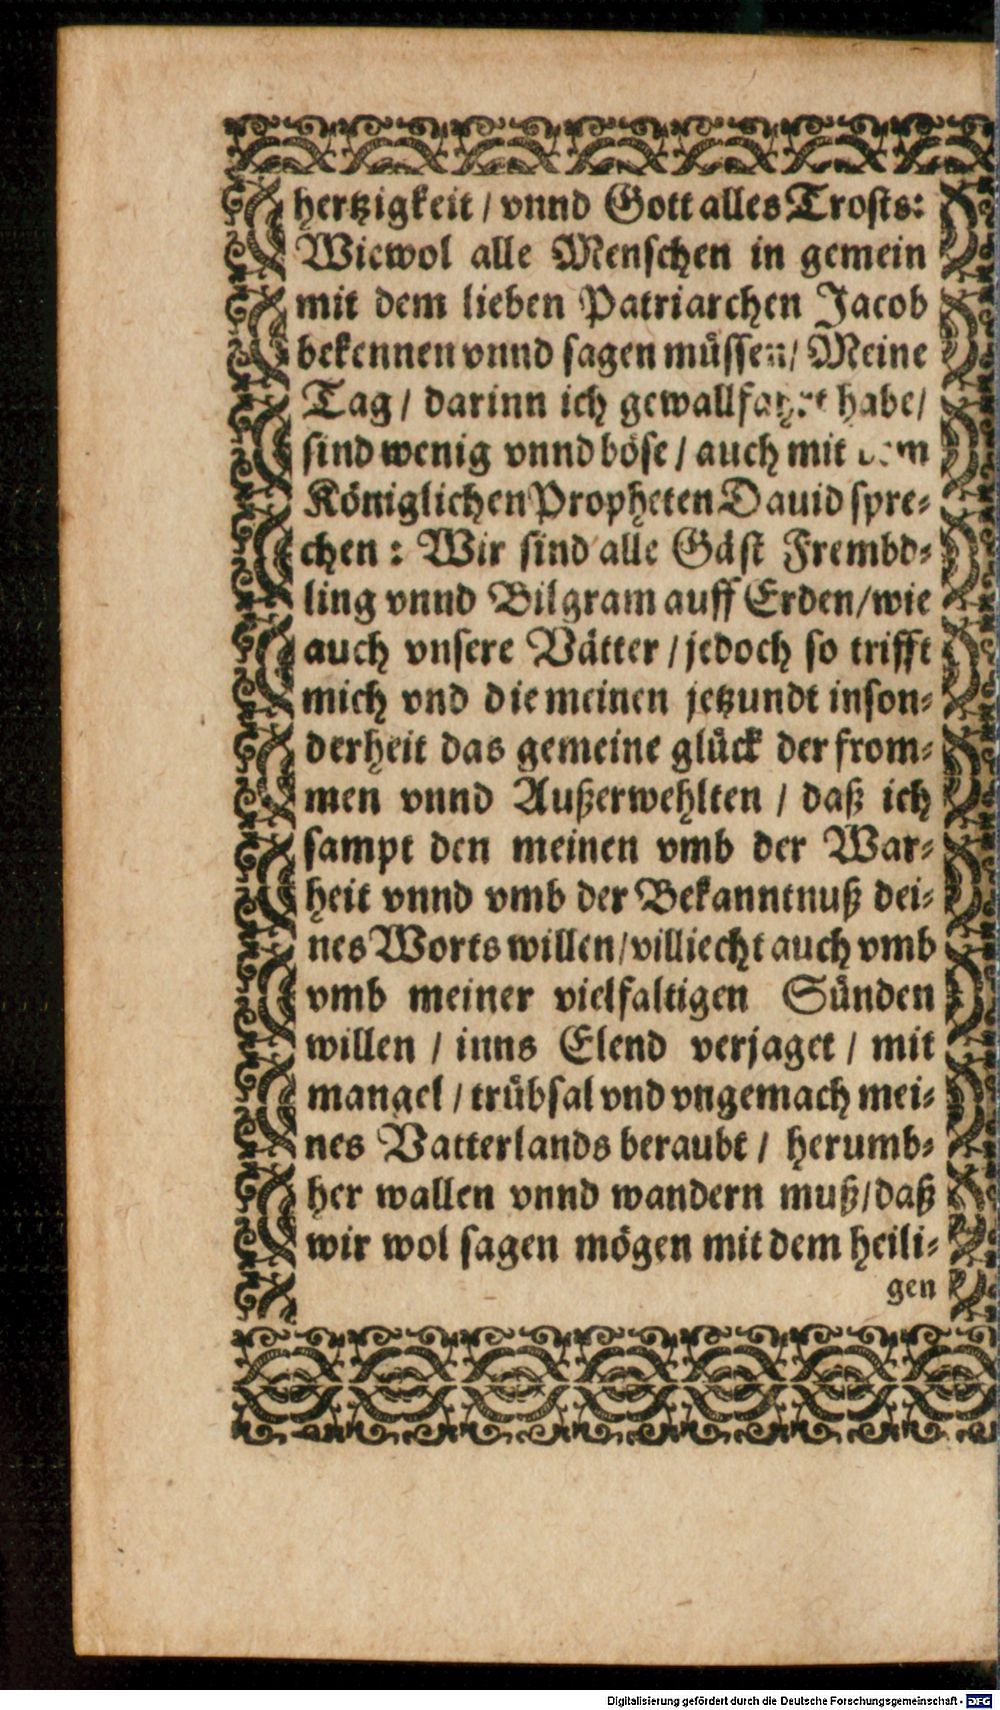 hertzigkeit / vnnd Gott alles Trosts:
Wiewol alle Menschen in gemein
mit dem lieben Patriarchen Jacob
bekennen vnnd sagen müssen / Meine
Tag / darinn ich habe /
sind wenig vnnd böse / auch mit
Königlichen Propheten Dauid spre-
chen : Wir sind alle Gäst Frembd-
ling vnnd Bilgram auff Erden / wie
auch vnsere Vätter / jedoch so trifft
mich vnd die meinen jetzundt inson-
derheit das gemeine glück der from-
men vnnd Außerwehlten / daß ich
sampt den meinen vmb der War-
heit vnnd vmb der Bekanntnuß dei-
nes Worts willen / villiecht auch vmb
vmb meiner vielfaltigen Sünden
willen / inns Elend verjaget / mit
mangel / trübsal vnd vngemach mei-
nes Vatterlands beraubt / herumb-
her wallen vnnd wandern muß / daß
wir wol sagen mögen mit dem heili-
gen
Digitalisierung gefördert durch die Deutsche Forschungsgemeinschaft - DFG